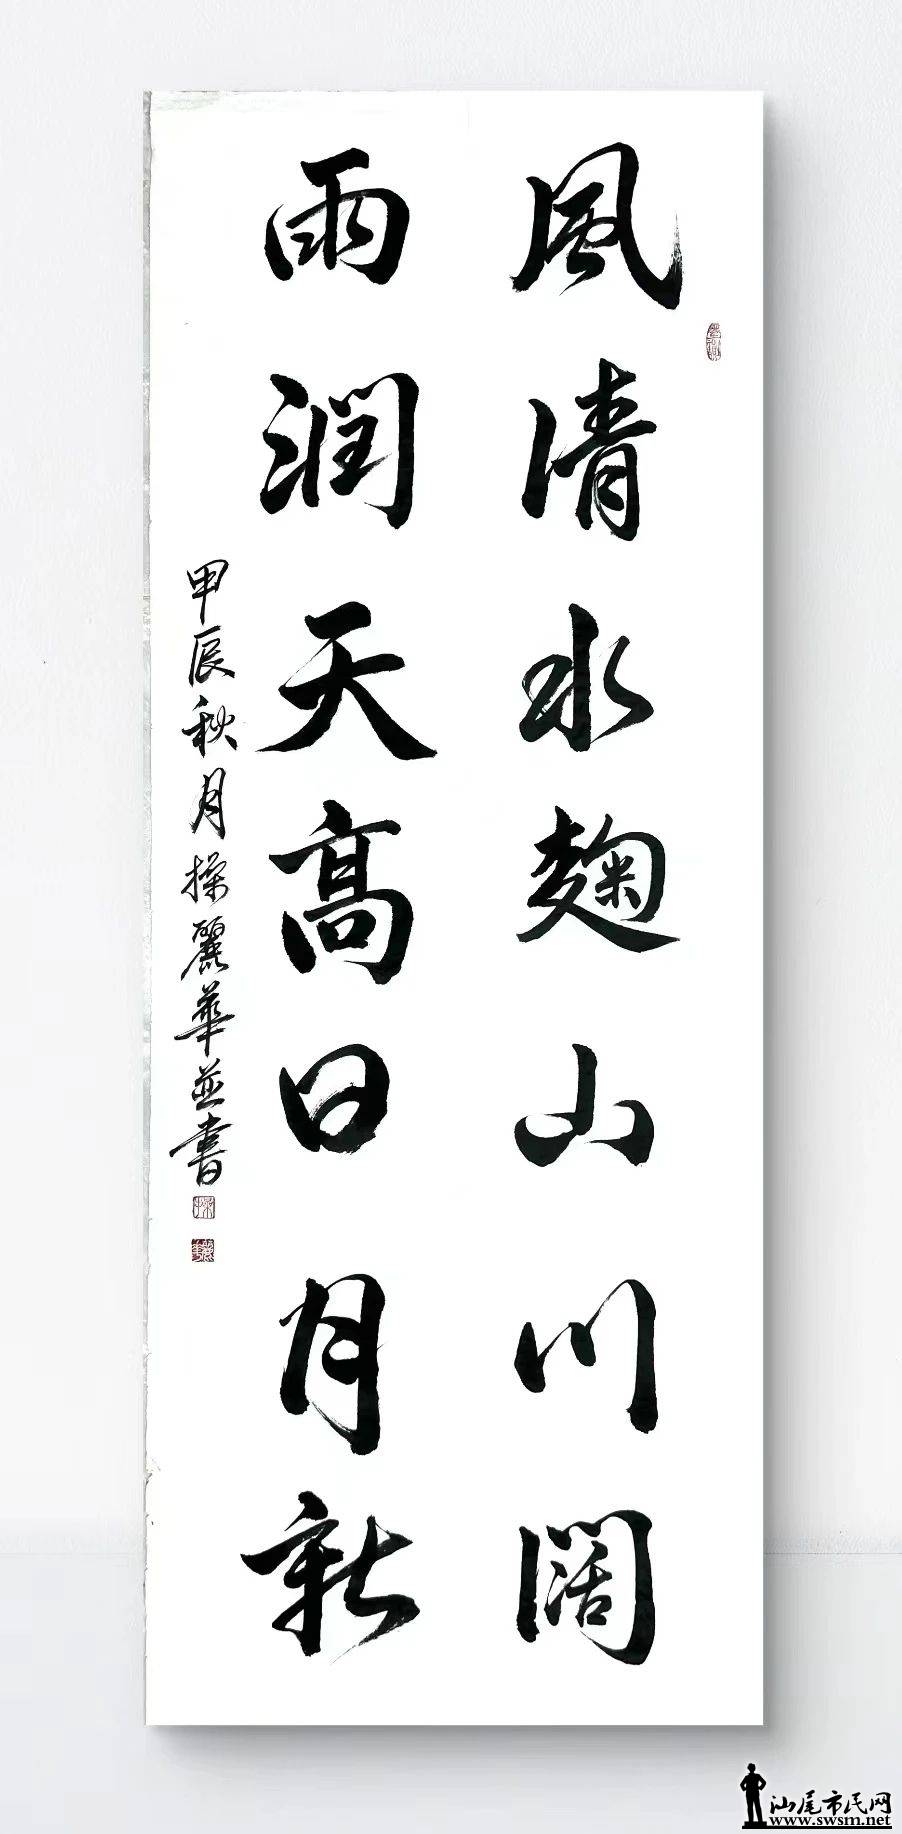 風清水麹山川闊
雨潤天高日月新
甲辰秋月操麗華並書
汕尾市民网
www.swsm.net